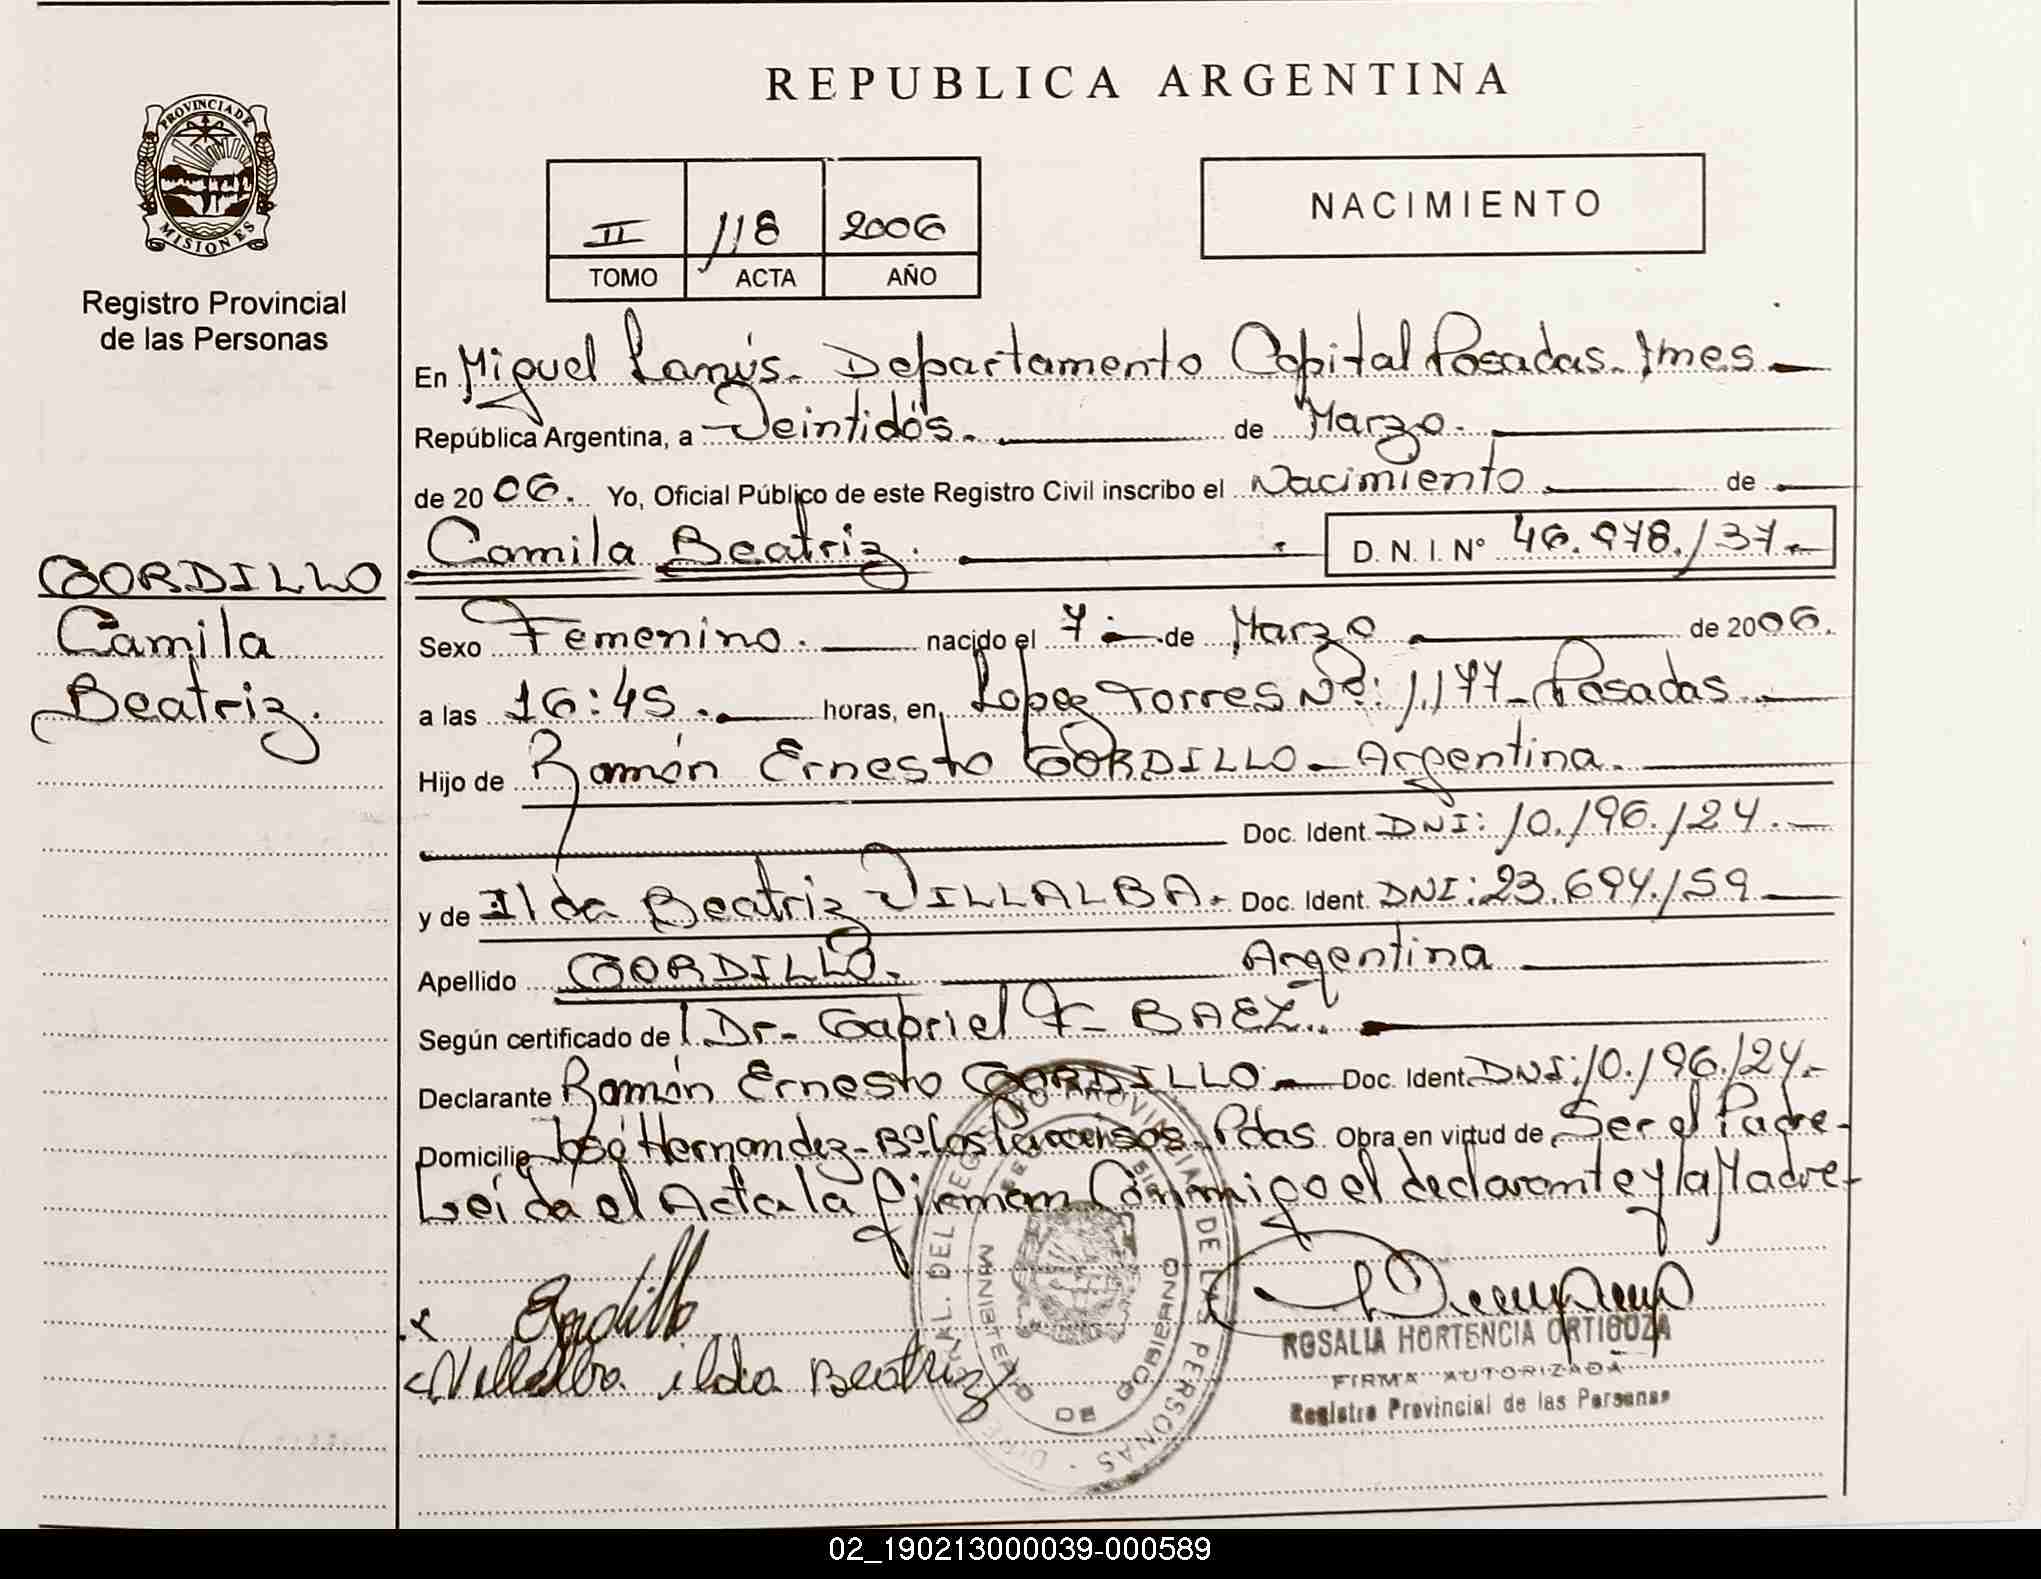 REPUBLICA ARGENTINA
PROVINCIA DE
MISIONES
Registro Provincial
de las Personas
II 118 2006
TOMO ACTA AÑO
NACIMIENTO
En Miguel Lanús. Departamento Capital Posadas. Mnes
República Argentina, a Veintidós. de Marzo.
de 2006. Yo, Oficial Público de este Registro Civil inscribo el Nacimiento de
Camila Beatriz. D. N. I. Nº 46.978.137.
GORDILLO
Camila
Beatriz.
Sexo Femenino. nacido el 7 de Marzo de 2006.
a las 16:45. horas, en Lopez Torres Nº: 1.177 - Posadas
Hijo de Ramón Ernesto GORDILLO - Argentina.
Doc. Ident. DNI: 10.196.124.
y de Ilda Beatriz VILLALBA. Doc. Ident. DNI: 23.694.159
Apellido GORDILLO. Argentina
Según certificado de Dr - Gabriel F - BAEZ.
Declarante Ramón Ernesto GORDILLO - Doc. Ident. DNI: 10.196.124.
Domicilio José Hernandez - Bº Los Paraisos - Pdas. Obra en virtud de Ser el Padre -
Leída el Acta la firman Conmigo el declarante y la Madre -
Gordillo
Villalba ilda Beatriz
DEL REGISTRO PROVINCIAL DE LAS PERSONAS
MINISTERIO DE GOBIERNO
ROSALIA HORTENCIA ORTIGOZA
FIRMA AUTORIZADA
Registro Provincial de las Personas
02_190213000039-000589